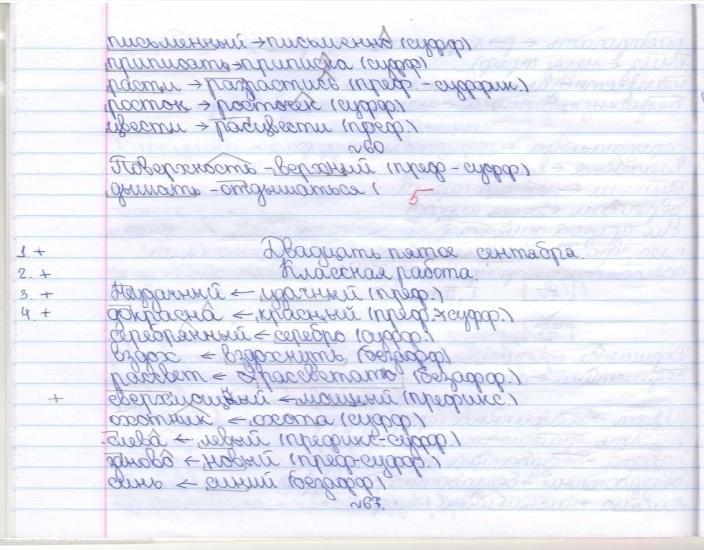 письменный → письменно (суфф)
приписать → приписка (суфф)
расти → разрастись (преф.-суффик.)
росток → росточек (суфф)
цвести → расцвести (преф.)
№60
Поверхность - верхний (преф-суфф)
дышать - отдышаться (
5
Двадцать пятое сентября.
1. +
Классная работа.
2. +
3. + Неудачный ← удачный (преф.)
4. + докрасна ← красный (преф.-суфф.)
серебрянный ← серебро (суфф.)
вздох ← вздохнуть (безафф)
рассвет ← рассветать (безафф.)
+ сверхмощный ← мощный (префикс.)
охотник ← охота (суфф)
слева ← левый (префикс-суфф)
заново ← новый (преф-суфф.)
синь ← синий (безафф)
№67.